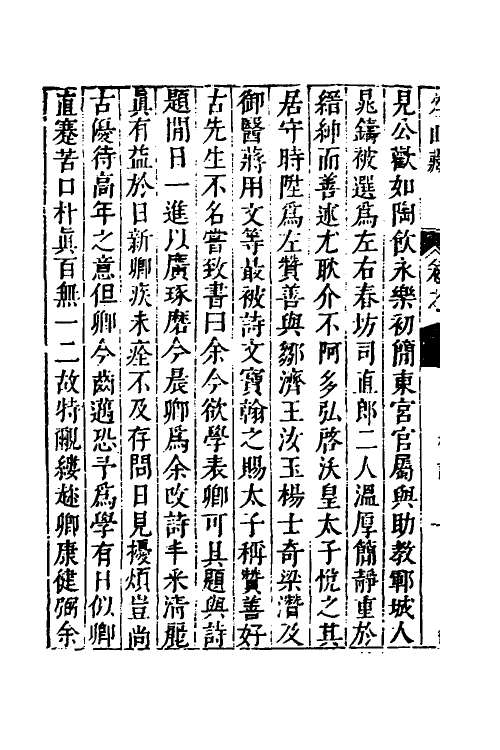 見公歡如陶飲永樂初簡東宮官屬與助教鄆城人
晁鑄被選爲左右春坊司直郎二人溫厚簡靜重於
縉紳而善述尤耿介不阿多弘啓沃皇太子悅之其
居守時陞爲左贊善與鄒濟王汝玉楊士奇梁潛及
御醫蔣用文等最被詩文寶翰之賜太子稱贊善好
古先生不名嘗致書曰余今欲學表卿可具題與詩
題閒日一進以廣琢磨今晨卿爲余改詩丰采清麗
眞有益於日新卿疾未痊不及存問日見擾煩豈尚
古優待高年之意但卿今齒邁恐予爲學有日似卿
直蹇苦口朴眞百無一二故特覼縷趂卿康健弼余